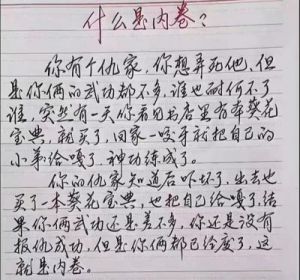 什么是内卷？
你有个仇家，你想弄死他，但
是你俩的武功都不多，谁也耐何不了
谁，突然有一天你看见书店里有本葵花
宝典，就买了，回家一咬牙就把自己的
小弟给嘎了，神功练成了。
你的仇家知道后吓坏了，出去也
买了一本葵花宝典，也把自己给嘎了，结
果你俩武功还是差不多，你还是没有
报仇成功，但是你俩都已经废了，这
就是内卷。